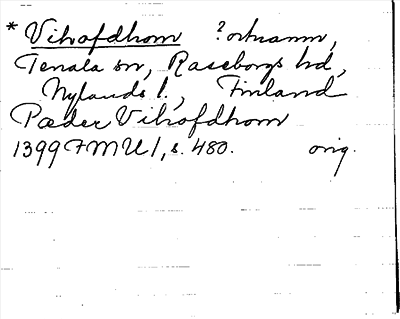 * Vihofdhom ?ortnamn,
Tenala sn, Raseborgs hd,
Nylands l., Finland
Pæder Vihofdhom
1399 FMU 1, s. 480. orig.